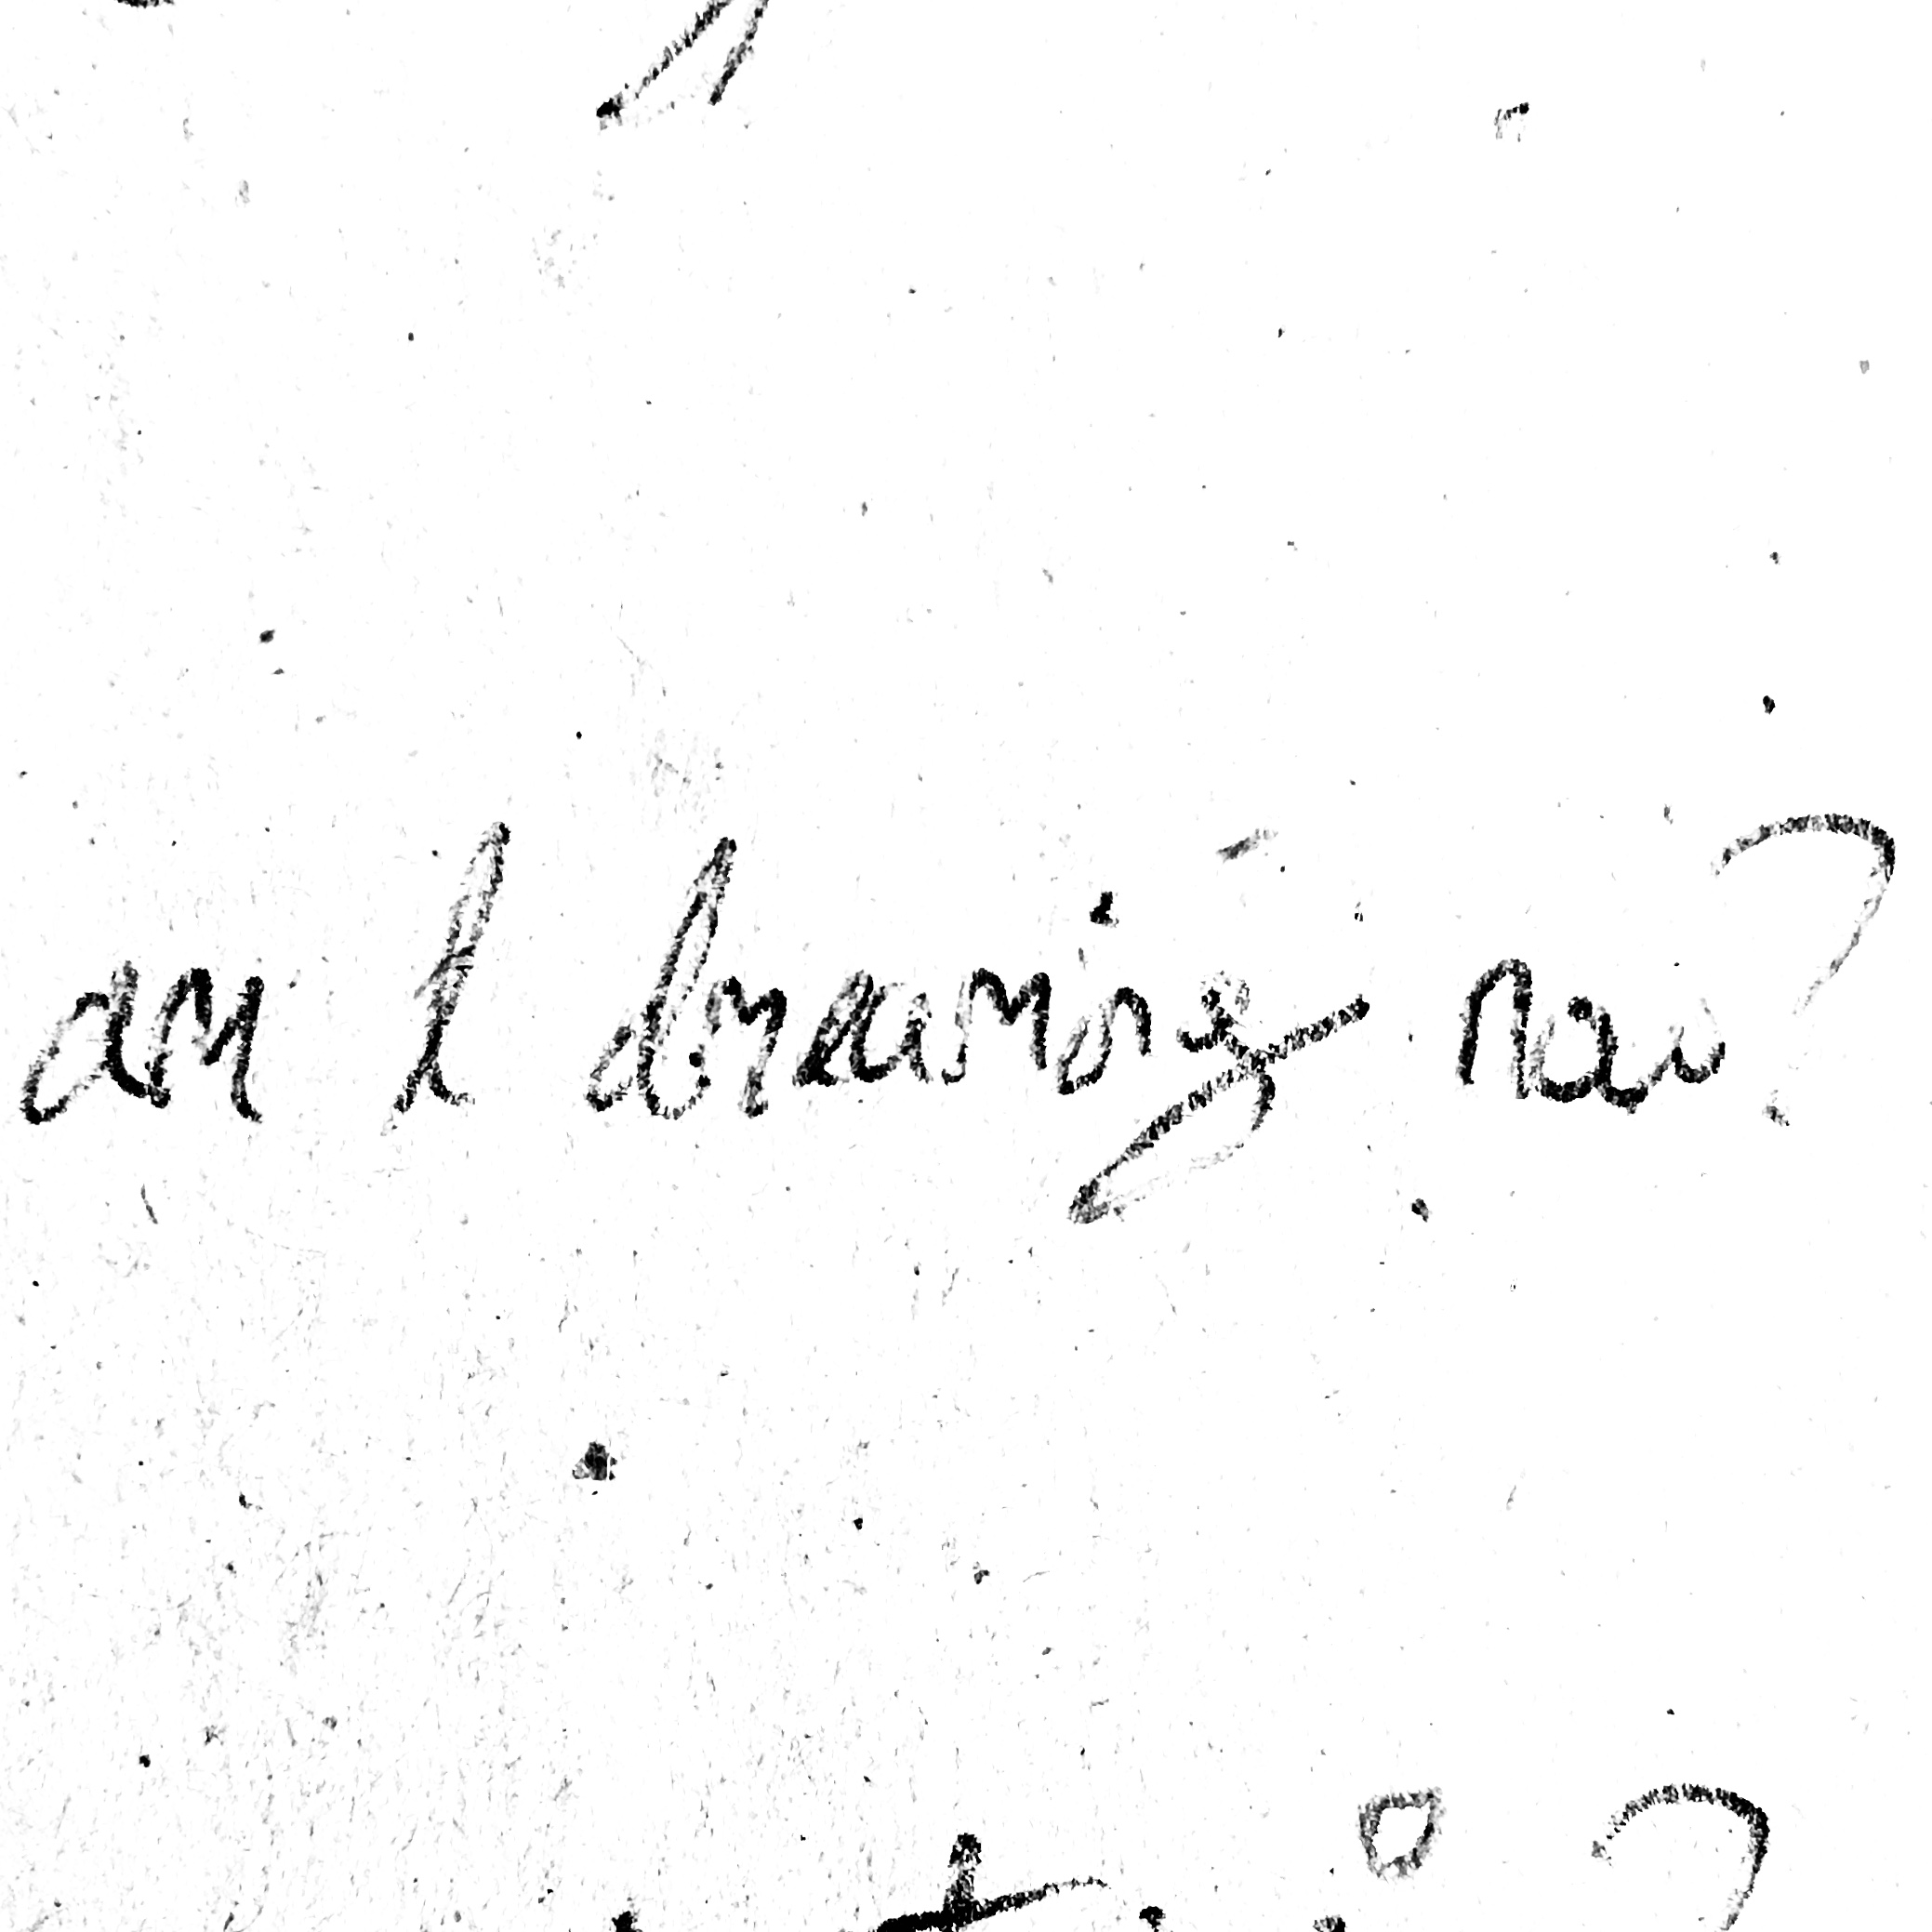 am I dreaming now?